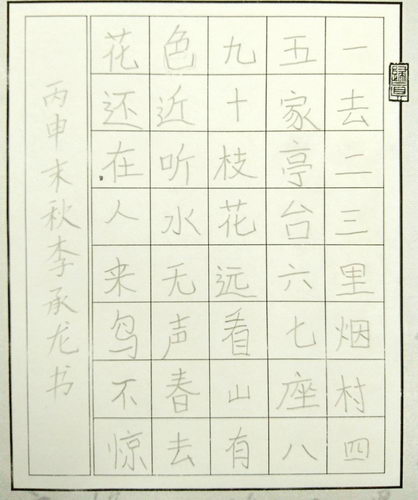 一去二三里烟村四
五家亭台六七座八
九十枝花远看山有
色近听水无声春去
花还在人来鸟不惊
丙申末秋李承龙书